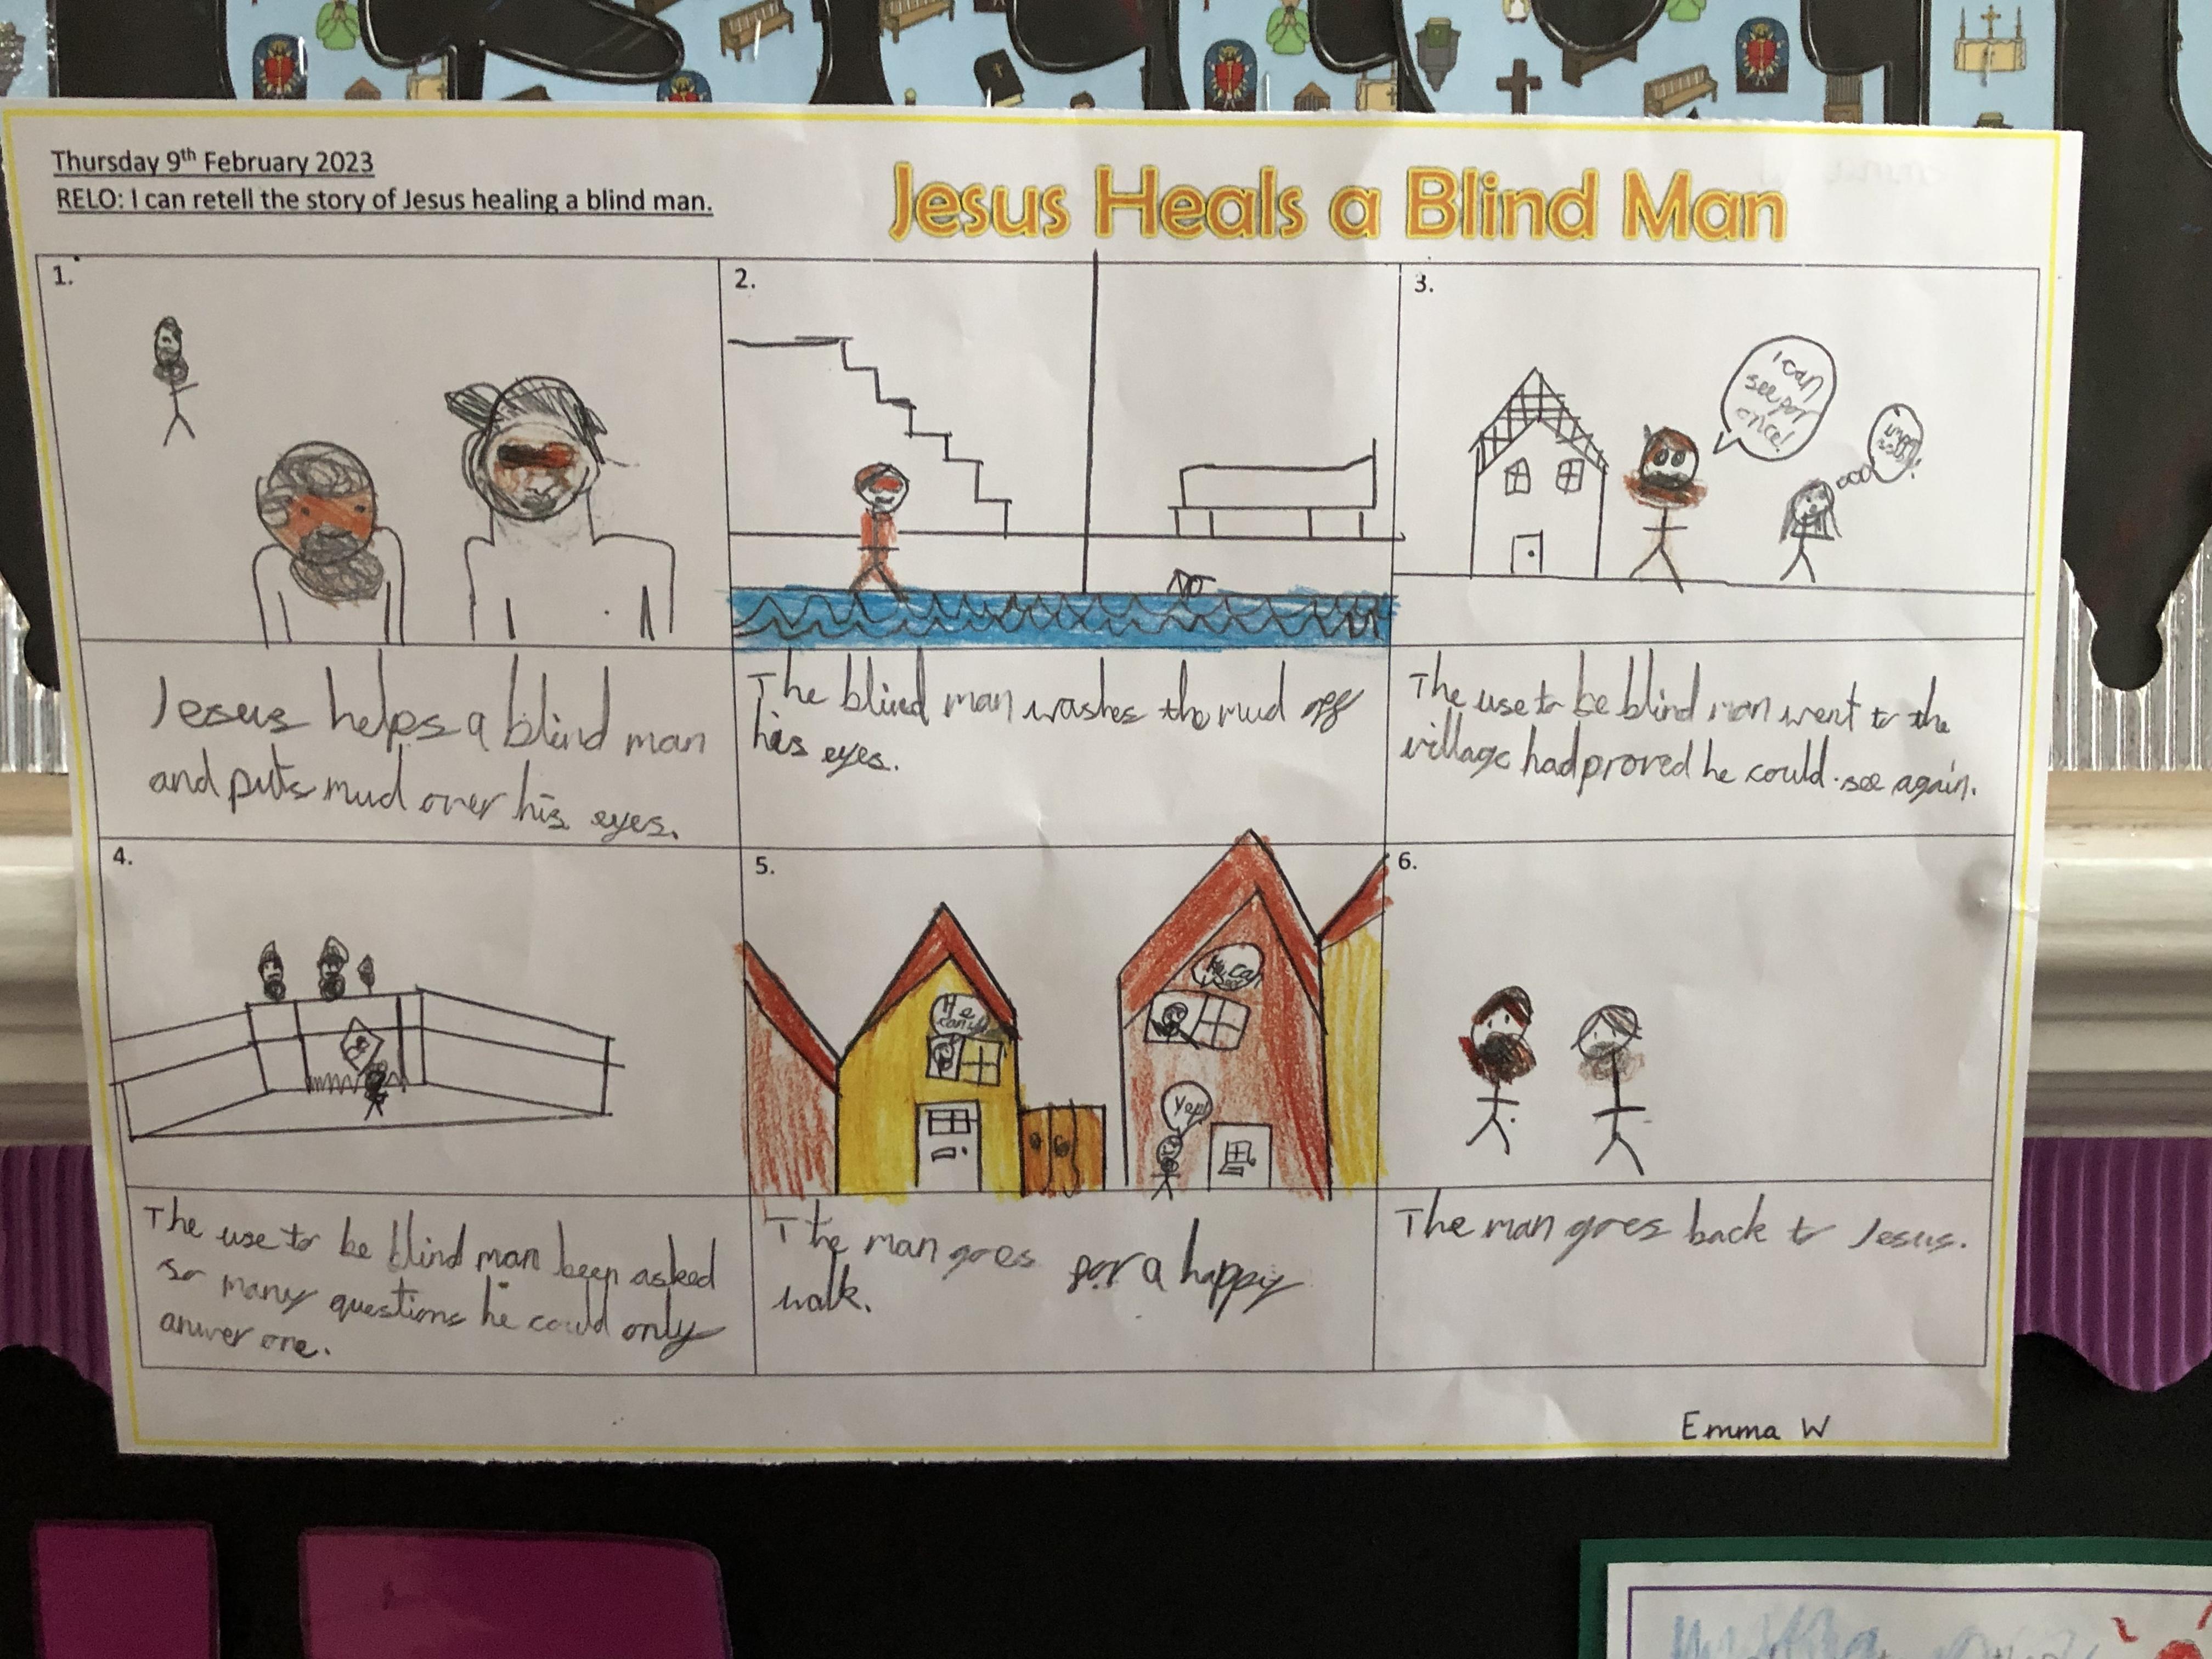 Thursday 9th February 2023
RELO: I can retell the story of Jesus healing a blind man.
Jesus Heals a Blind Man
1.
2.
3.
I can
see for
once!
Jesus helps a blind man
and puts mud over his eyes.
The blind man washes the mud off
his eyes.
The use to be blind man went to the
village had proved he could see again.
4.
5.
He
can
He can
Yep!
6.
The use to be blind man been asked
so many questions he could only
anwer one.
The man goes for a happy
walk.
The man goes back to Jesus.
Emma W